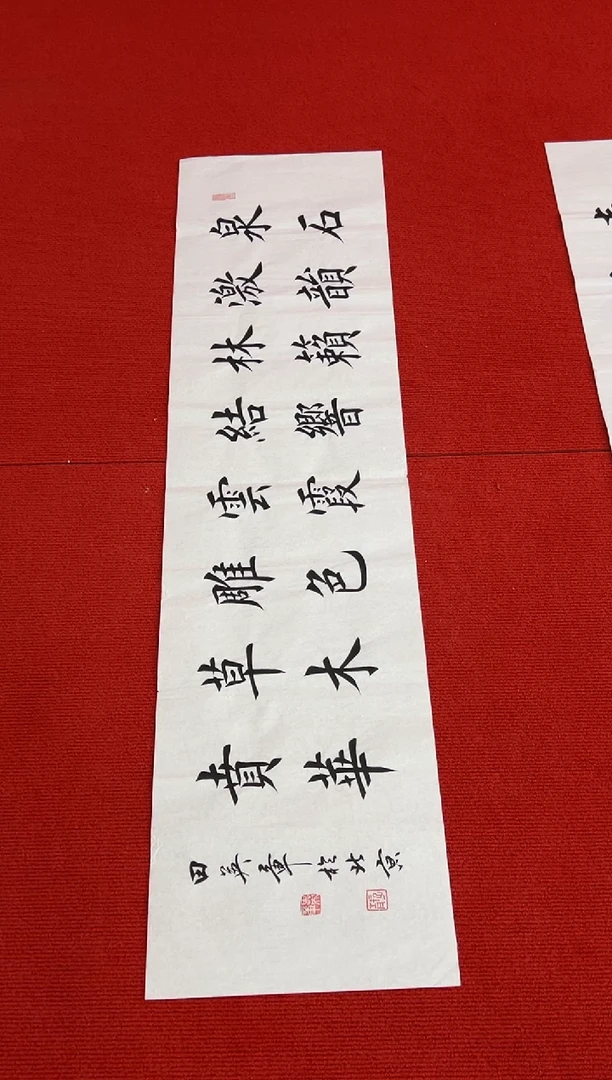 泉石
激韻
林籟
結響
雲霞
雕色
草木
賁華
田英章於北京